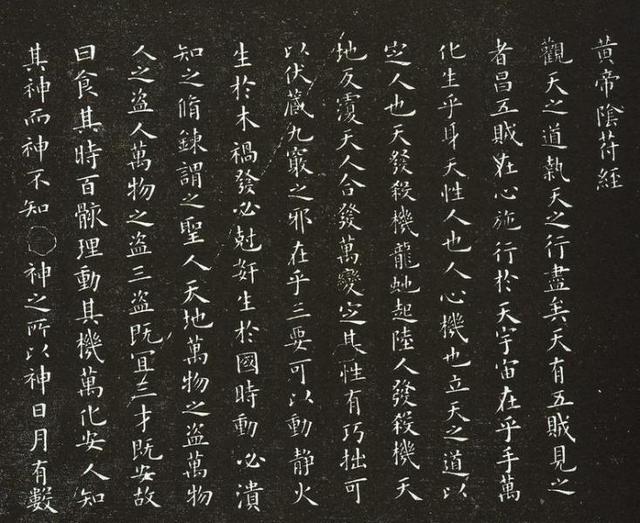 黄帝陰苻經
觀天之道執天之行盡矣天有五賊見之
者昌五賊在心施行於天宇宙在乎手萬
化生乎身天性人也人心機也立天之道以
定人也天發殺機龍虵起陸人發殺機天
地反澓天人合發萬變定基性有巧拙可
以伏藏九竅之邪在乎三要可以動静火
生於木禍發必尅奸生於國時動必潰
知之脩鍊謂之聖人天地萬物之盗萬物
人之盗人萬物之盗三盗既冝三才既安故
曰食其時百骸理動其機萬化安人知
其神而神不知神之所以神日月有數